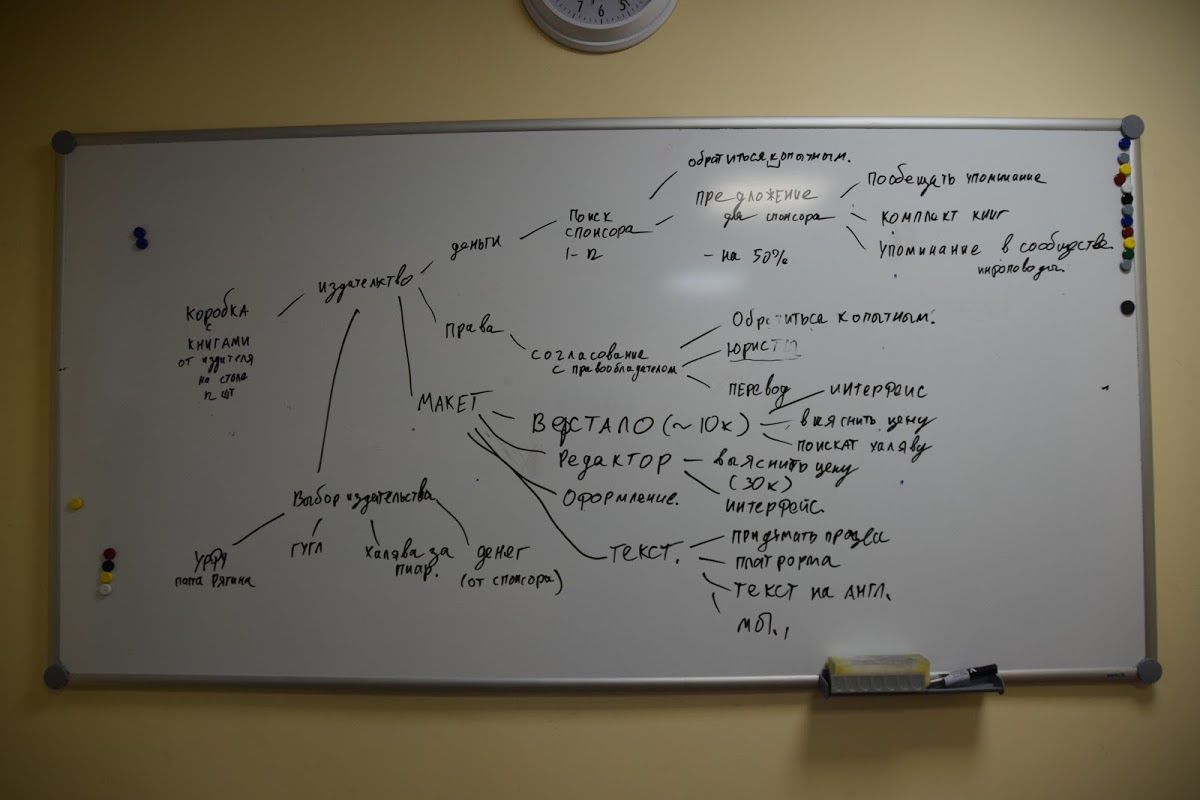 7 6 5
обратиться копытным.
предложение
для спонсора
пообещать упоминание
комплект книг
упоминание в сообществе
поиск
спонсора
1- n
- на 50%
деньги
издательство
коробка
с
книгами
от издителя
на столе
n шт
права
согласование
с правообладателом
Обратиться копытным.
юристы
перевод
МАКЕТ
Верстало (~10к)
интерфейс
вяяснить цену
поискат халяву
Редактор
выяснить цену
(30к)
интерфейс.
Оформление.
текст.
придумать
платформа
текст на англ.
Выбор издательства
урфу
папа
гугл
халява за
пиар.
денег
(от спонсора)